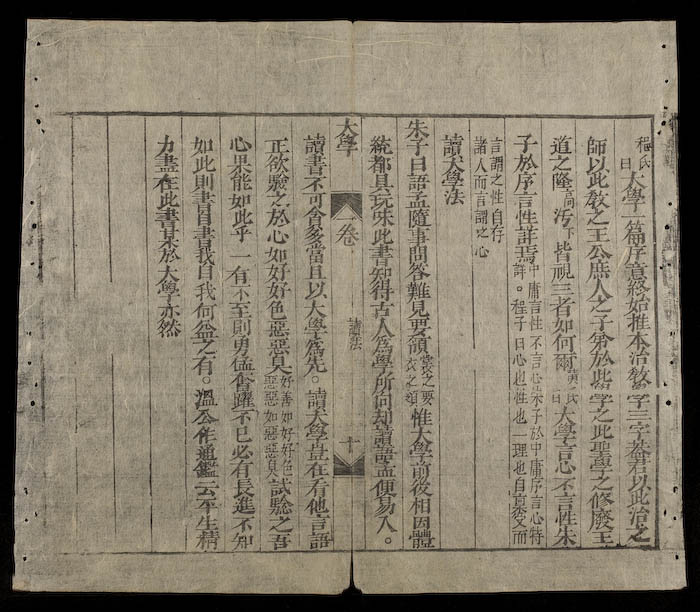 程氏曰大學一篇序意終始推本治教學三字蓋君以此治之
師以此教之王公庶人之子弟於此學學之此聖學之修廢王
道之隆高汚下皆視三者如何爾黃氏曰大學言心不言性朱
子於序言性詳焉中庸言性不言心朱子於中庸序言心特詳。程子曰心也性也一理也自禀受而
言謂之性自存
諸人而言謂之心
讀大學法
朱子曰語孟隨事問答難見要領裳之要衣之領惟大學前後相因體
統都具玩味此書知得古人爲學所向却讀語孟便易入。
大學
卷
讀法
十
讀書不可貪多當且以大學爲先。讀大學豈在看他言語
正欲驗之於心如好好色惡惡臭好善如好好色惡惡如惡惡臭試驗之吾
心果能如此乎一有不至則勇猛奮躍不已必有長進不知
如此則書自書我自我何益之有。溫公作通鑑云平生精
力盡在此書某於大學亦然